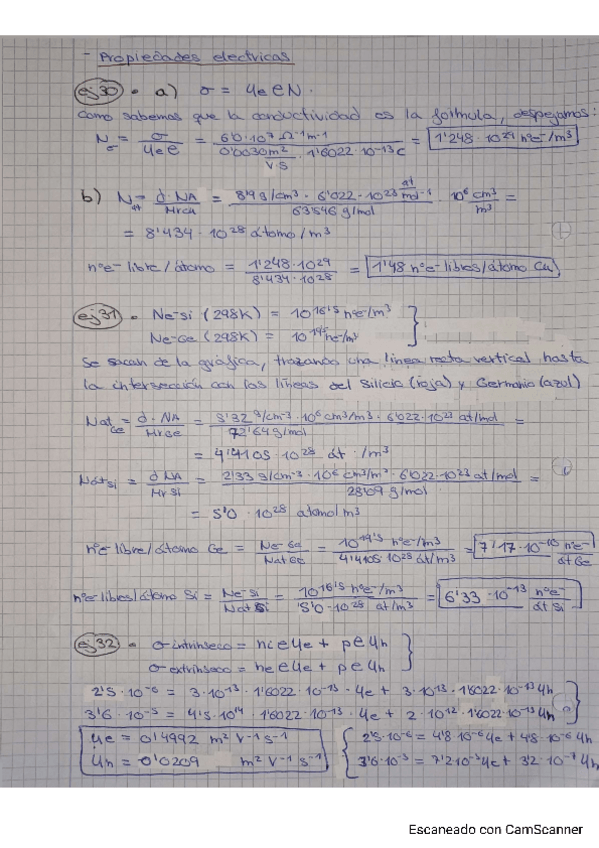 - Propiedades electricas
ej30 • a) σ = μe e N.
Como sabemos que la conductividad es la fórmula, despejamos:
Nσ = σ / μe e = 6'0·10⁷ Ω⁻¹m⁻¹ / 0'0030 m²/V·S · 1'6022·10⁻¹³ C = 1'248·10²⁹ nºe⁻/m³
b) Nat = d·NA / Mr Cu = 8'9 g/cm³ · 6'022·10²³ at/mol⁻¹ / 63'546 g/mol · 10⁶ cm³/m³ =
= 8'434 · 10²⁸ átomo/m³
nºe⁻ libre/átomo = 1'248·10²⁹ / 8'434·10²⁸ = 1'48 nºe⁻ libres/átomo Cu
ej31 • Ne-Si (298K) = 10¹⁶'⁵ nºe⁻/m³
Ne-Ge (298K) = 10¹⁹'⁵ nºe⁻/m³
Se sacan de la gráfica, trazando una línea recta vertical hasta
la intersección con las líneas del Silicio (roja) y Germanio (azul)
Nat Ge = d·NA / Mr Ge = 5'32 g/cm⁻³ · 10⁶ cm³/m³ · 6'022·10²³ at/mol / 72'64 g/mol =
= 4'4105·10²⁸ át /m³
Nat Si = d·NA / Mr Si = 2'33 g/cm⁻³ · 10⁶ cm³/m³ · 6'022·10²³ at/mol / 28'09 g/mol =
= 5'0 · 10²⁸ atomo/m³
nºe⁻ libre/átomo Ge = Ne-Ge / Nat Ge = 10¹⁹'⁵ nºe⁻/m³ / 4'4105·10²⁸ át/m³ = 7'17·10⁻¹⁰ nºe⁻/át Ge
nºe⁻ libres/átomo Si = Ne-Si / Nat Si = 10¹⁶'⁵ nºe⁻/m³ / 5'0·10²⁸ at/m³ = 6'33·10⁻¹³ nºe⁻/át Si
ej32 • σ intrínseco = ni e μe + p e μh
σ extrínseco = ne e μe + p e μh
2'5·10⁻⁶ = 3·10¹³ · 1'6022·10⁻¹³ · μe + 3·10¹³ · 1'6022·10⁻¹³ μh
3'6·10⁻⁵ = 4'5·10¹⁴ · 1'6022·10⁻¹³ · μe + 2·10¹² · 1'6022·10⁻¹³ μh
μe = 0'4992 m² V⁻¹ s⁻¹
μh = 0'0209 m² V⁻¹ s⁻¹
2'5·10⁻⁶ = 4'8·10⁻⁶ μe + 4'8·10⁻⁶ μh
3'6·10⁻⁵ = 7'2·10⁻⁵ μe + 3'2·10⁻⁷ μh
Escaneado con CamScanner